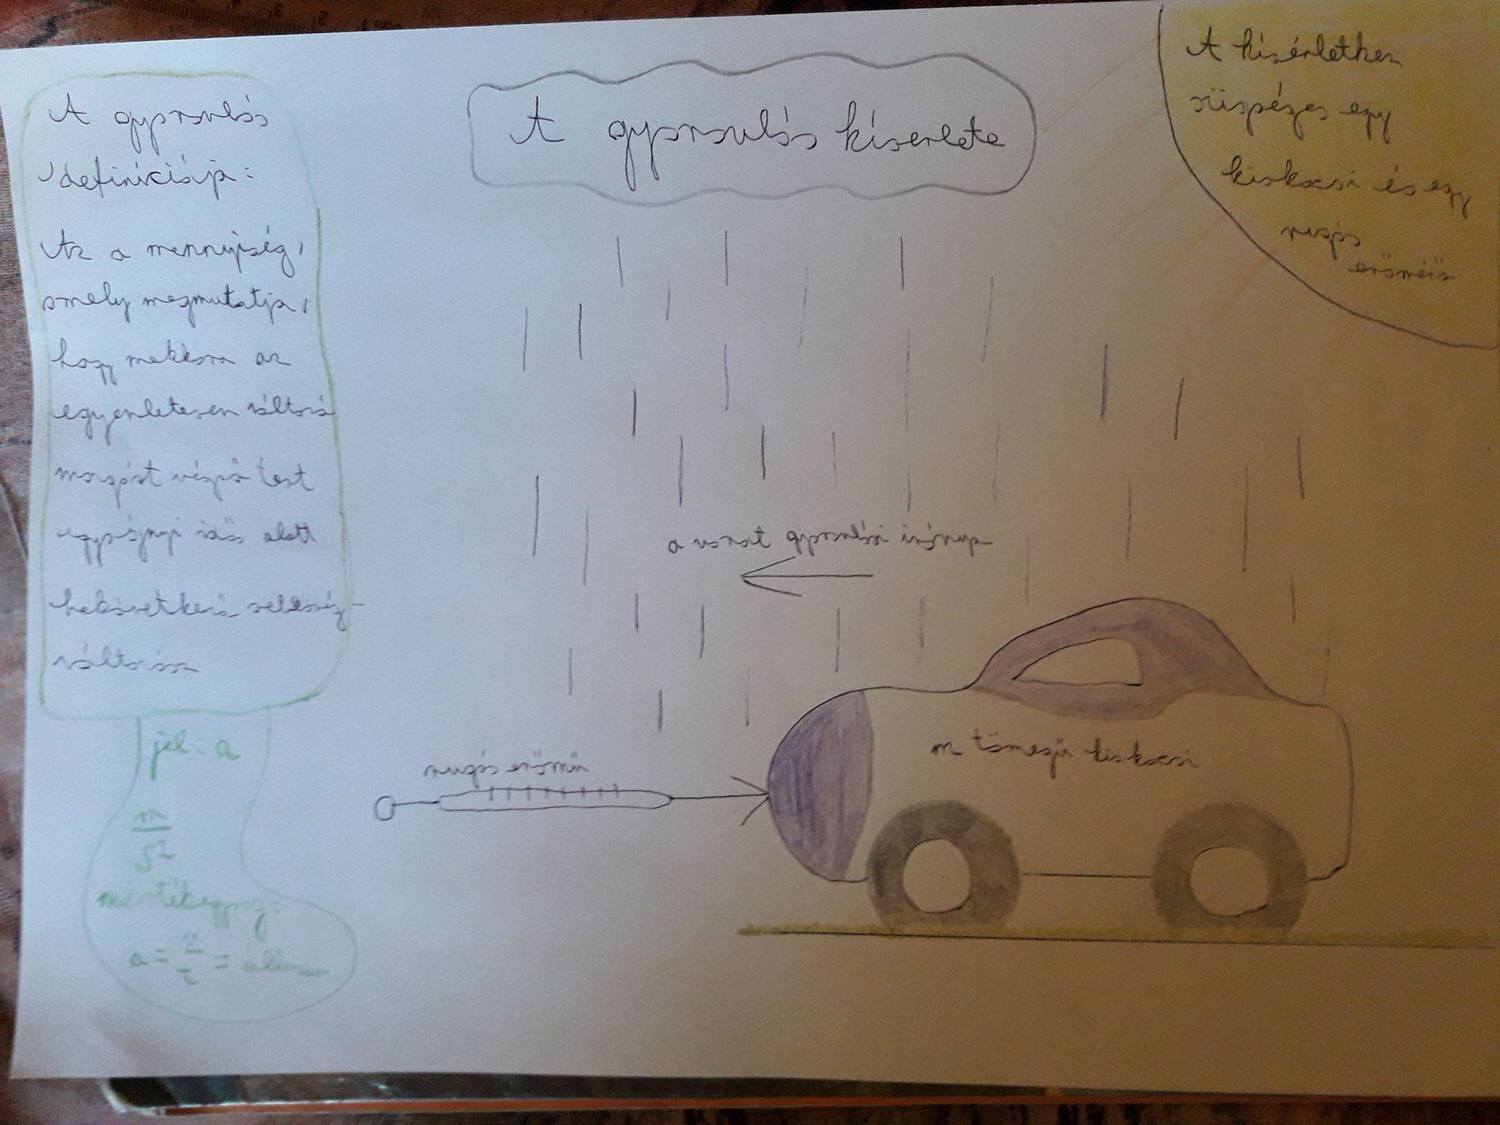 A gyorsulás kísérlete
A gyorsulás
definíciója:
Az a mennyiség,
amely megmutatja,
hogy mekkora az
egyenletesen változó
mozgást végző test
egységnyi idő alatt
bekövetkező sebesség-
változása
jel: a
m
s²
mértékegység:
a = v/t = állandó
A kísérlethez
szükséges egy
kiskocsi és egy
rugós
erőmérő
a vonat gyorsulási iránya
rugós erőmérő
m tömegű kiskocsi